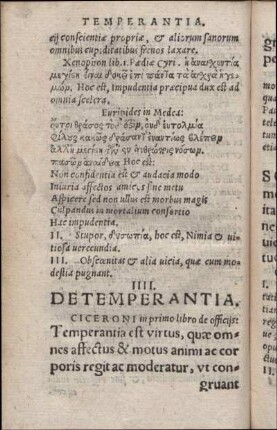 TEMPERANTIA.
eij conscientiæ propriæ, & aliorum sanorum
omnibus cupiditatibus frenos laxare.
Xenophon lib. 1. Pædiæ Cyri. ἡ ἀναισχυντία
Hoc est, impudentia præcipua dux est ad
omnia scelera.
Euripides in Medea:
οὔτοι θράσος τόδ' ἐστὶν, οὐδ' εὐτολμία
φίλους κακῶς δράσαντ' ἐναντίον βλέπειν
ἀλλ' ἡ μεγίστη τῶν ἐν ἀνθρώποις νόσων
πασῶν ἀναίδεια Hoc est:
Non confidentia est & audacia modo
Iniuria affectos amicos sine metu
Aspicere sed non ullus est morbus magis
Culpandus in mortalium consortio
Hac impudentia.
II. Stupor, δυσωπία, hoc est, Nimia & ui-
tiosa uerecundia.
III. Obscœnitas & alia uicia, quæ cum mo-
destia pugnant.
IIII.
DE TEMPERANTIA.
CICERONI in primo libro de officijs:
Temperantia est virtus, quæ om-
nes affectus & motus animi ac cor
poris regit ac moderatur, vt con-
gruant